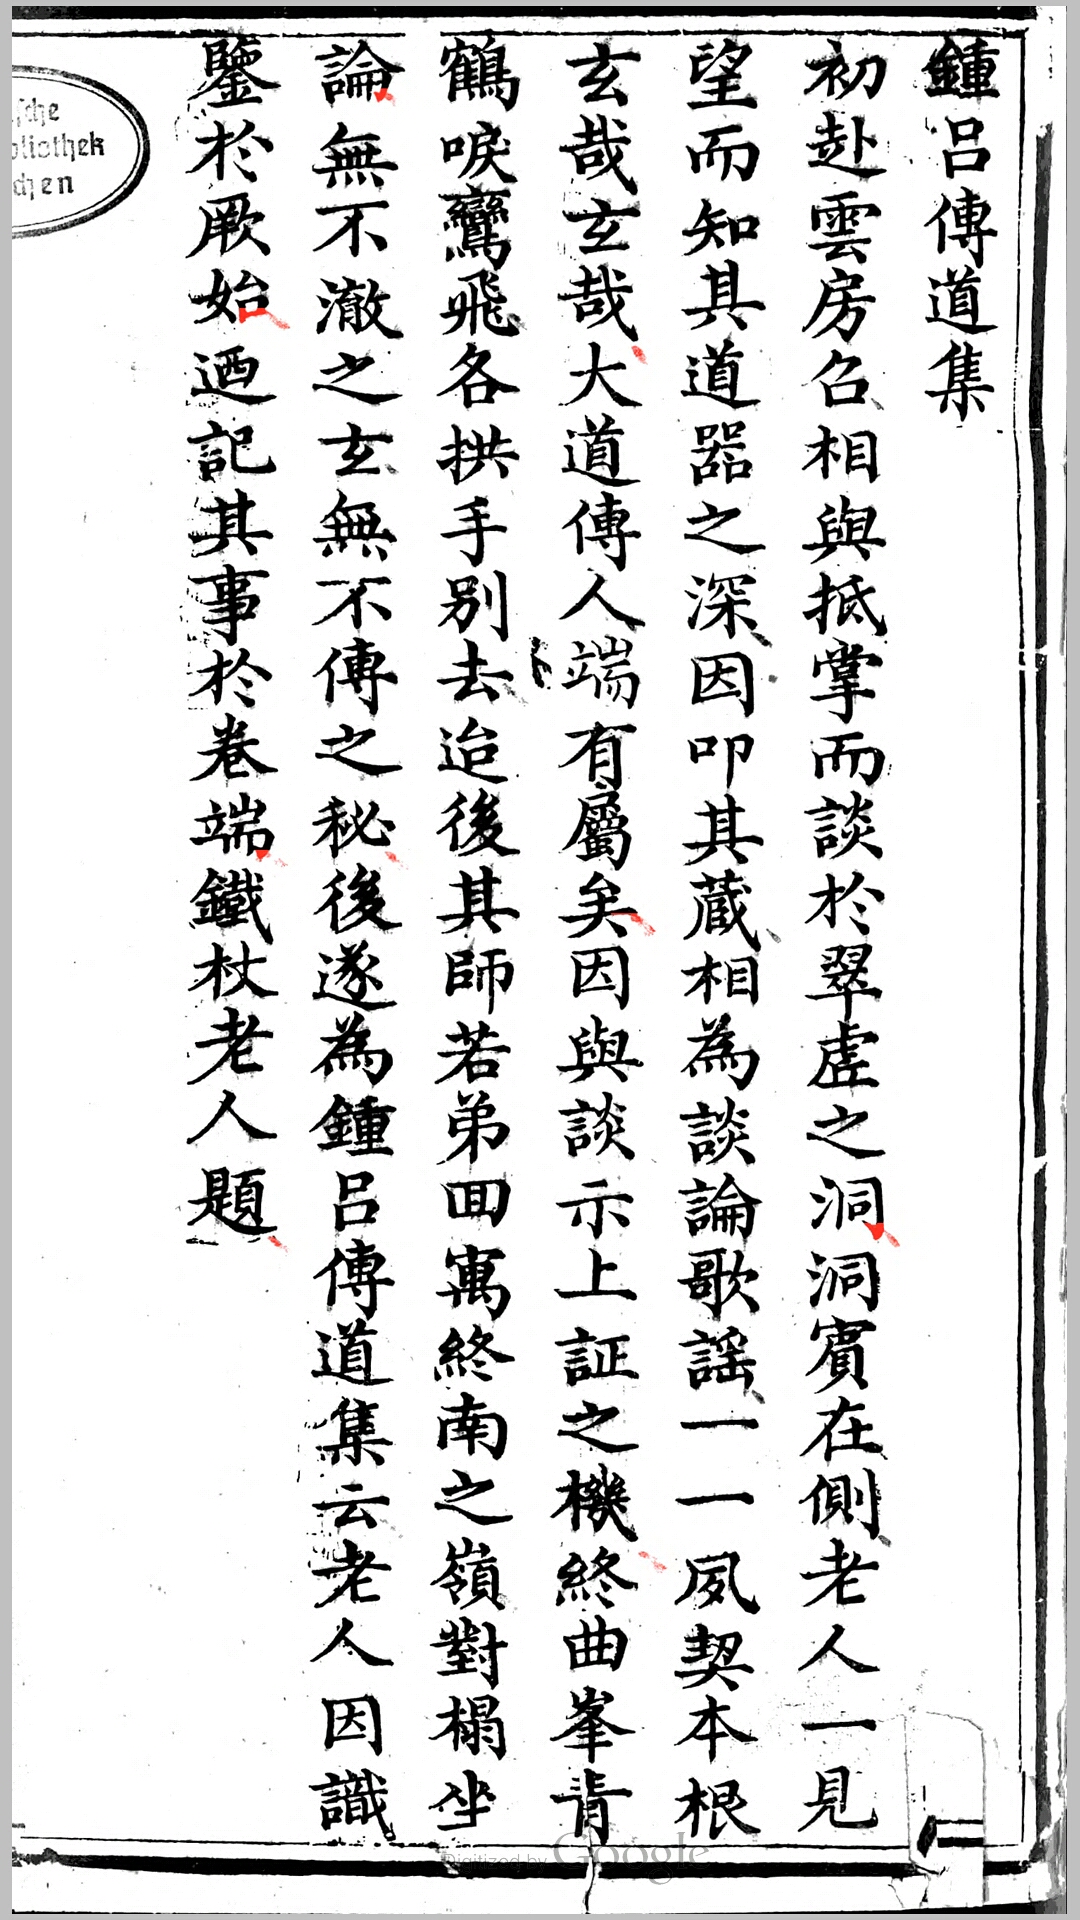 鍾呂傳道集
初赴雲房召相與抵掌而談於翠虛之洞洞賓在側老人一見
望而知其道器之深因叩其蔵相為談論歌謡一一夙契本根
玄哉玄哉大道傳人端有屬矣因與談示上証之機終曲峯青
鶴唳鸞飛各拱手别去迨後其師若弟囬寓終南之嶺對榻坐
論無不澈之玄無不傳之秘後遂為鍾呂傳道集云老人因識
鑒於厥始迺記其事於卷端鐵杖老人題
sche
bliothek
chen
Digitized by Google